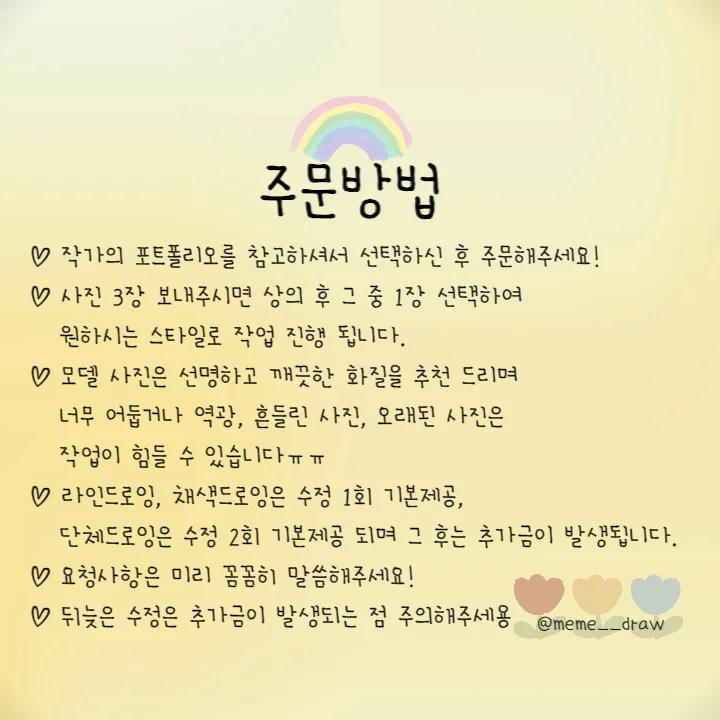 주문방법
♡ 작가의 포트폴리오를 참고하셔서 선택하신 후 주문해주세요!
♡ 사진 3장 보내주시면 상의 후 그 중 1장 선택하여
원하시는 스타일로 작업 진행 됩니다.
♡ 모델 사진은 선명하고 깨끗한 화질을 추천 드리며
너무 어둡거나 역광, 흔들린 사진, 오래된 사진은
작업이 힘들 수 있습니다ㅠㅠ
♡ 라인드로잉, 채색드로잉은 수정 1회 기본제공,
단체드로잉은 수정 2회 기본제공 되며 그 후는 추가금이 발생됩니다.
♡ 요청사항은 미리 꼼꼼히 말씀해주세요!
♡ 뒤늦은 수정은 추가금이 발생되는 점 주의해주세용
@meme__draw